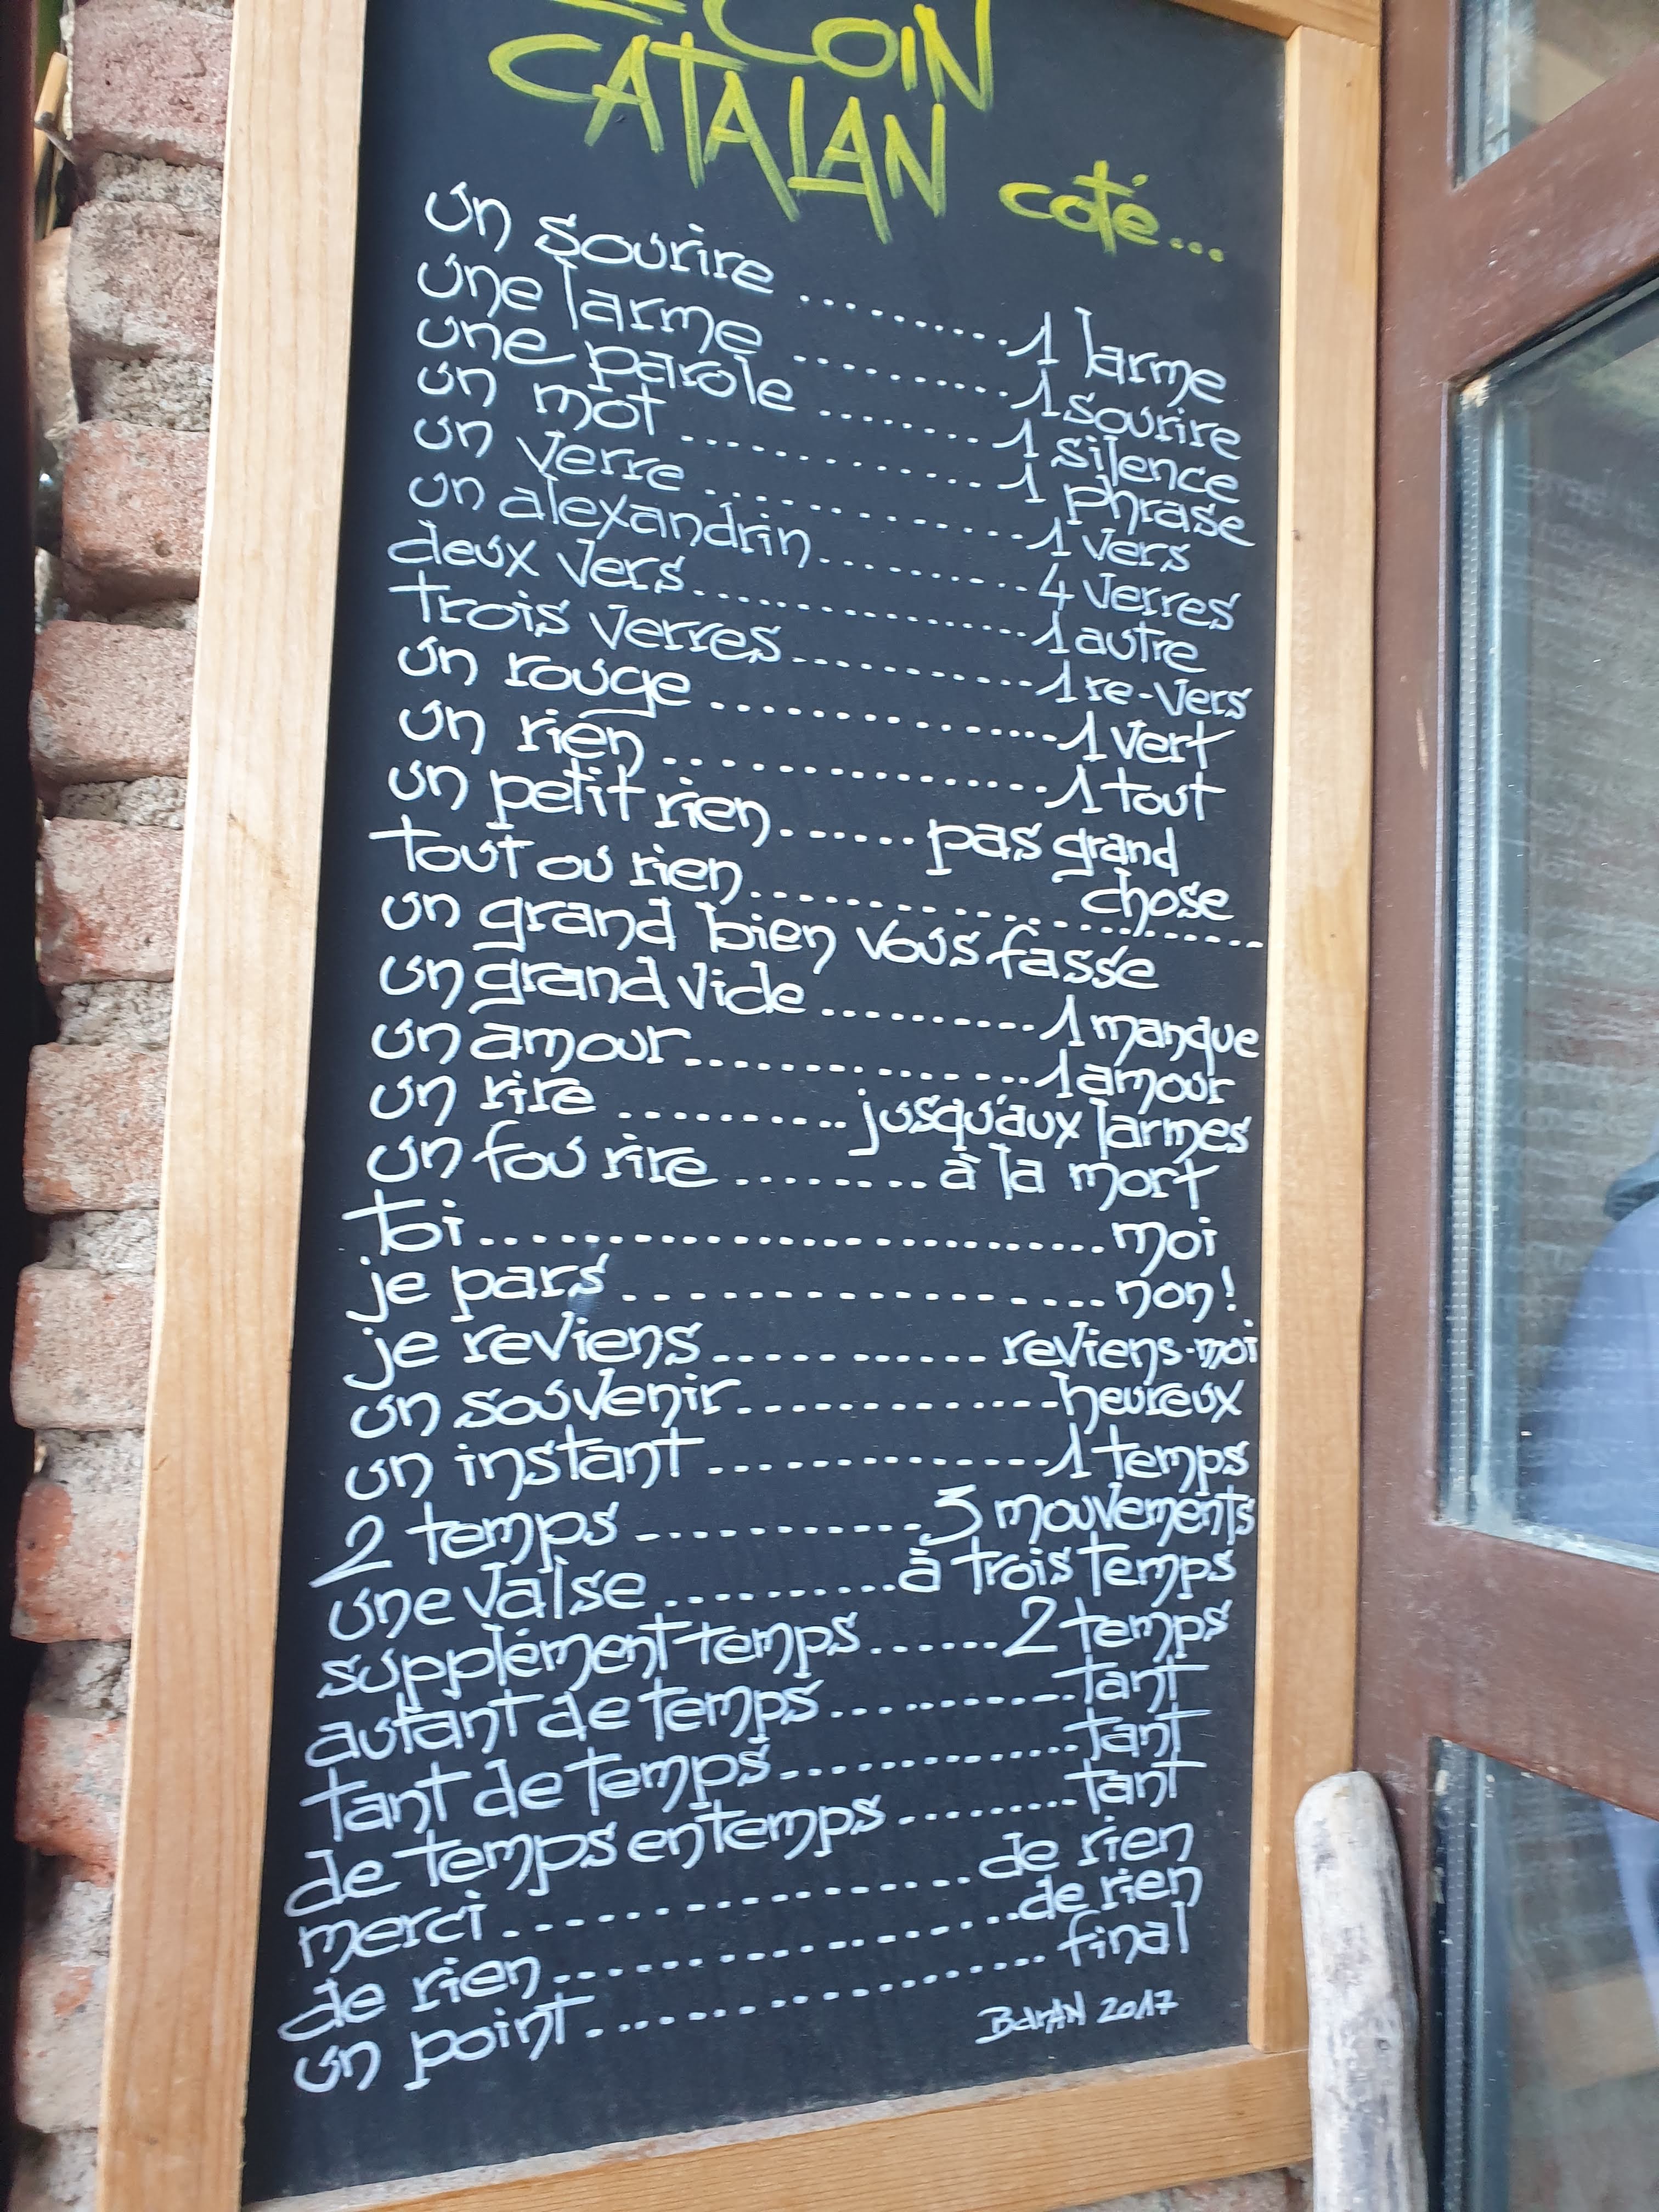 LE COIN
CATALAN
coté...
un sourire ............ 1 larme
une larme ............ 1 sourire
une parole ......... 1 silence
un mot ................ 1 phrase
un verre ............... 1 vers
un alexandrin .......... 4 verres
deux vers ................ 1 autre
trois verres ............. 1 re-vers
un rouge ................. 1 vert
un rien ................... 1 tout
un petit rien ...... pas grand
chose
tout ou rien ........................
un grand bien vous fasse
un grand vide .......... 1 manque
un amour ................ 1 amour
un rire .......... jusqu'aux larmes
un fou rire ........ à la mort
toi ............................ moi
je pars ..................... non!
je reviens ............ reviens-moi
un souvenir ............. heureux
un instant ............... 1 temps
2 temps ............ 3 mouvements
une valse .......... à trois temps
supplément temps ...... 2 temps
autant de temps ........... tant
tant de temps ............. tant
de temps en temps ......... tant
merci ..................... de rien
de rien ................... de rien
un point .................. final
BarAN 2017